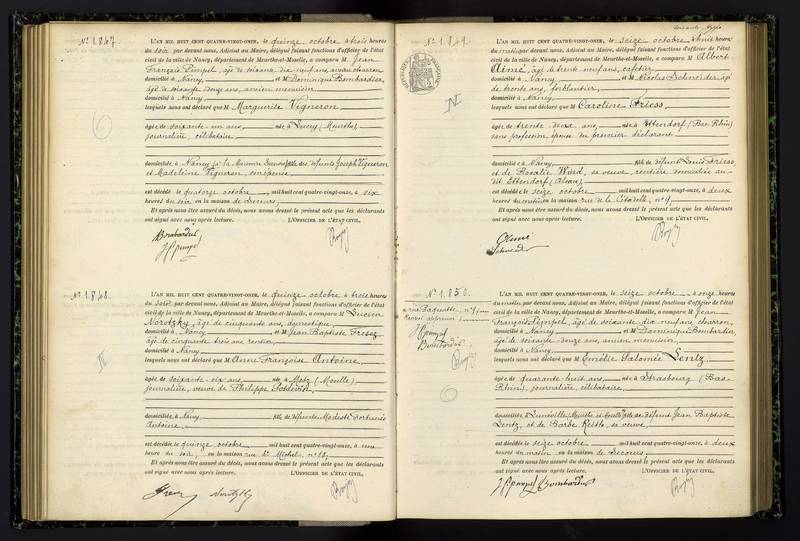 N° 1847.
L'AN MIL HUIT CENT QUATRE-VINGT-ONZE, le quinze octobre à trois heures
du soir par devant nous, Adjoint au Maire, délégué faisant fonctions d'officier de l'état
civil de la ville de Nancy, département de Meurthe-et-Moselle, a comparu M Jean
François Pimpel, âgé de soixante dix neuf ans, ancien charron
domicilié à Nancy et M Dominique Bombardier,
âgé de soixante douze ans, ancien menuisier
domicilié à Nancy
lesquels nous ont déclaré que M Marguerite Vigneron
âgée de soixante un ans née à Lucey (Meurthe)
journalière, célibataire
domiciliée à Nancy fille des défunts Joseph Vigneron
et Madeleine Vigneron
est décédée le quatorze octobre mil huit cent quatre-vingt-onze, à six
heures du soir en la maison de Secours
Et après nous être assuré du décès, nous avons dressé le présent acte que les déclarants
ont signé avec nous après lecture. L'OFFICIER DE L'ÉTAT CIVIL,
Bombardier
N° 1848.
L'AN MIL HUIT CENT QUATRE-VINGT-ONZE, le quinze octobre à trois heures
du soir par devant nous, Adjoint au Maire, délégué faisant fonctions d'officier de l'état
civil de la ville de Nancy, département de Meurthe-et-Moselle, a comparu M Lucien
Norotzky, âgé de cinquante ans, domestique
domicilié à Nancy et M Jean Baptiste
âgé de cinquante trois ans rentier
domicilié à Nancy
lesquels nous ont déclaré que M Anne Françoise Antoine
âgée de soixante-six ans née à Metz (Moselle)
journalière, veuve de Philippe
domiciliée à Nancy fille de défunts Modeste
Antoine
est décédée le quinze octobre mil huit cent quatre-vingt-onze, à une
heure du soir, en la maison rue St Michel, n° 18
Et après nous être assuré du décès, nous avons dressé le présent acte que les déclarants
ont signé avec nous après lecture. L'OFFICIER DE L'ÉTAT CIVIL,
Norotzky
N° 1849.
L'AN MIL HUIT CENT QUATRE-VINGT-ONZE, le seize octobre à huit heures
du matin par devant nous, Adjoint au Maire, délégué faisant fonctions d'officier de l'état
civil de la ville de Nancy, département de Meurthe-et-Moselle, a comparu M Albert
Aimé, âgé de trente neuf ans
domicilié à Nancy et M Nicolas Schneider, âgé
de trente ans, ferblantier
domicilié à Nancy
lesquels nous ont déclaré que M Caroline Friess
âgée de trente deux ans née à Ettendorf (Bas Rhin)
sans profession, épouse du premier déclarant
domiciliée à Nancy fille de défunt Louis Friess
et de Rosalie Wird, sa veuve, rentière domiciliée au
dit Ettendorf (Alsace)
est décédée le seize octobre mil huit cent quatre-vingt-onze, à deux
heures du matin en la maison rue de la Citadelle, n° 9
Et après nous être assuré du décès, nous avons dressé le présent acte que les déclarants
ont signé avec nous après lecture. L'OFFICIER DE L'ÉTAT CIVIL,
Aimé
Schneider
N° 1850.
L'AN MIL HUIT CENT QUATRE-VINGT-ONZE, le seize octobre à onze heures
du matin par devant nous, Adjoint au Maire, délégué faisant fonctions d'officier de l'état
civil de la ville de Nancy, département de Meurthe-et-Moselle, a comparu M Jean
François Pimpel, âgé de soixante dix neuf ans, charron,
domicilié à Nancy et M Dominique Bombardier,
âgé de soixante douze ans, ancien menuisier
domicilié à Nancy
lesquels nous ont déclaré que M Emélie Salomée Lentz
âgée de quarante huit ans née à Strasbourg (Bas-
Rhin), journalière, célibataire
domiciliée à Lunéville, Meurthe et Moselle fille de défunt Jean Baptiste
Lentz, et de Barbe sa veuve
est décédée le seize octobre mil huit cent quatre-vingt-onze, à deux
heures du matin en la maison de Secours
Et après nous être assuré du décès, nous avons dressé le présent acte que les déclarants
ont signé avec nous après lecture. L'OFFICIER DE L'ÉTAT CIVIL,
Bombardier